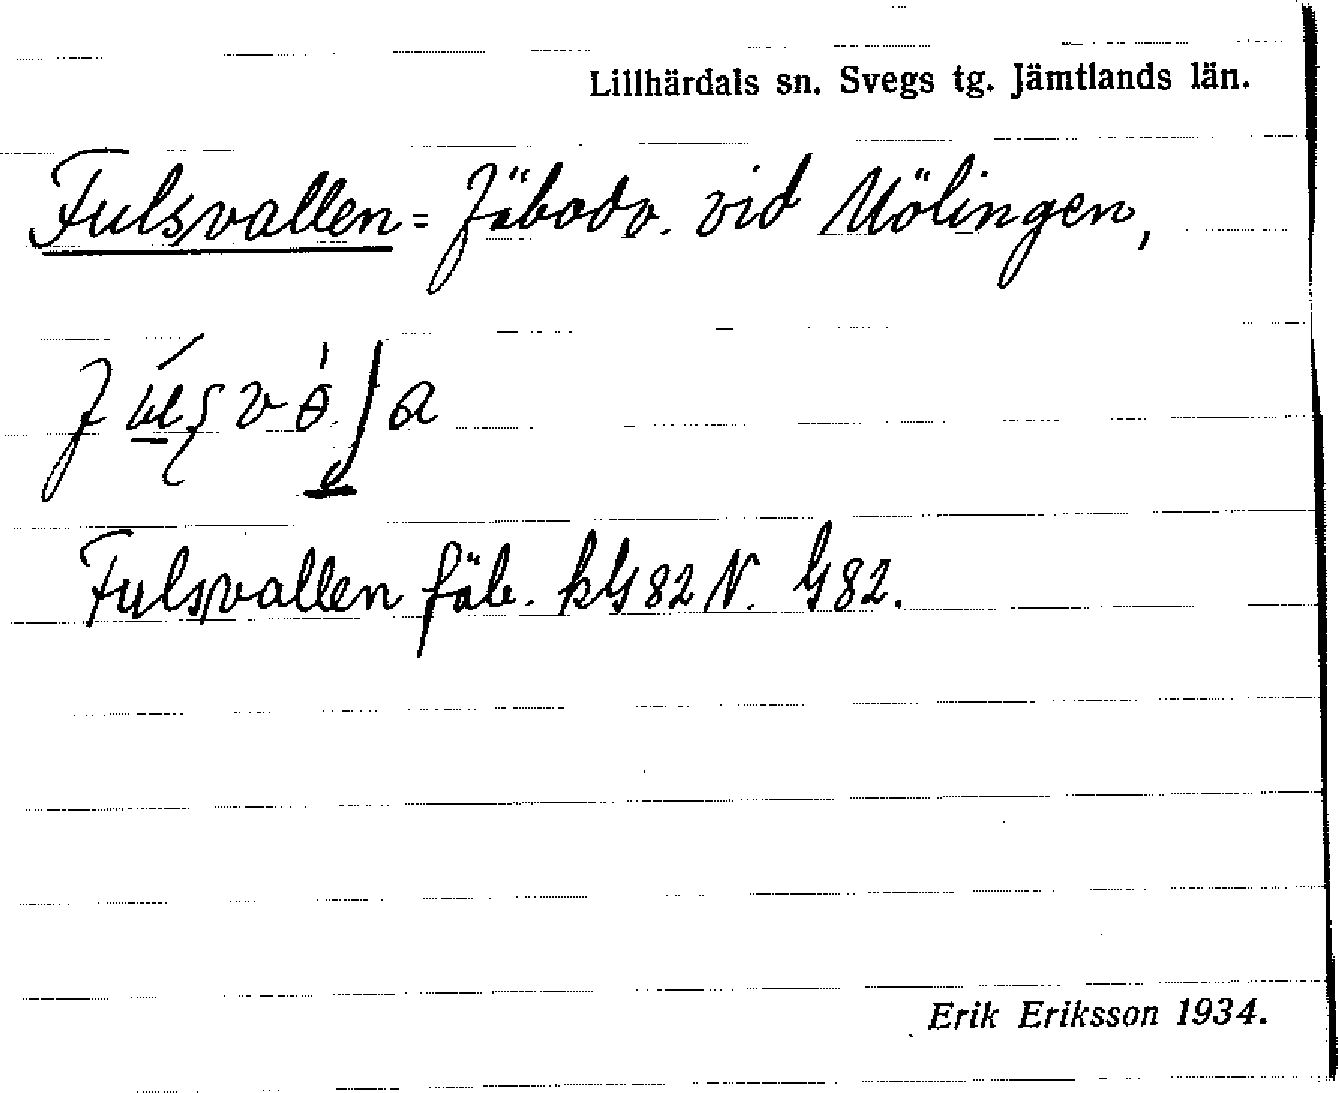 Lillhärdals sn. Svegs tg. Jämtlands län.
Fulsvallen = fäbodv. vid Mölingen,
Fulsvallen fäb. kG82N. G82.
Erik Eriksson 1934.